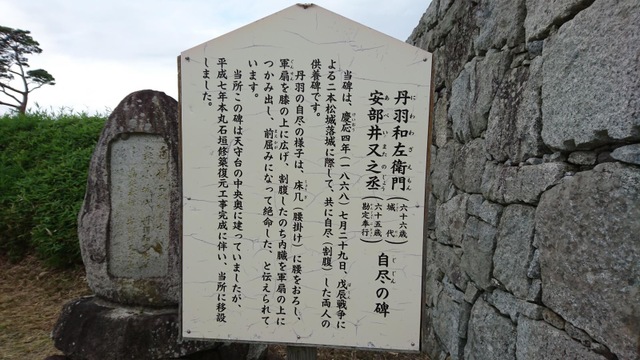 丹羽和左衛門(六十六歳 城代)
安部井又之丞(六十五歳 勘定奉行)
自尽の碑
当碑は、慶応四年(一八六八)七月二十九日、戊辰戦争に
よる二本松城落城に際して、共に自尽(割腹)した両人の
供養碑です。
丹羽の自尽の様子は、床几(腰掛け)に腰をおろし、
軍扇を膝の上に広げ、割腹したのち内臓を軍扇の上に
つかみ出し、前屈みになって絶命した、と伝えられて
います。
当所この碑は天守台の中央奥に建っていましたが、
平成七年本丸石垣修築復元工事完成に伴い、当所に移設
しました。